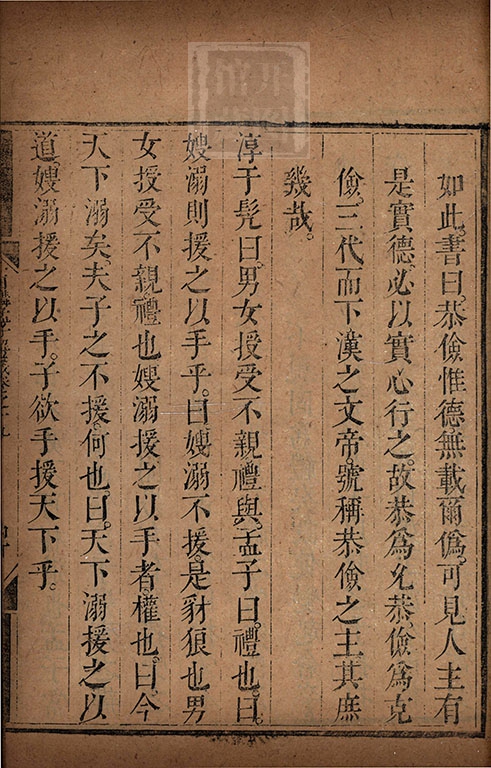 如此。書曰。恭儉惟德無載爾僞。可見人主有
是實德。必以實心行之。故恭爲允恭。儉爲克
儉。三代而下漢之文帝。號稱恭儉之主其庶
幾哉。
淳于髡曰。男女授受不親禮與。孟子曰。禮也。曰。
嫂溺則援之以手乎。曰嫂溺不援。是豺狼也男
女授受不親。禮也嫂溺援之以手者。權也。曰。今
天下溺矣。夫子之不援。何也。曰。天下溺援之以
道。嫂溺援之以手。子欲手援天下乎。